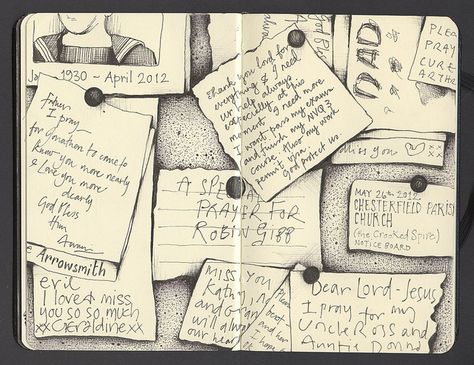 1930 - April 2012
Father
I pray
for Jonathon to come to
Know you more nearly
& Love you more
dearly
God Bless
Him
Arrowsmith
evil
I love & miss
you so so much
xxGeraldinexx
Thank you Lord for
everything & I need
your help always
especially at this
moment. I need more
want pass my exams
and finish my NVQ3
course
God protect us.
A SPECIAL
PRAYER FOR
ROBIN GIBB
MISS YOU
Kathy
and Gran
will always
our hear
DAD
God Bless
PLEA
PRAY
CURE
ARTHR
Miss you
xxx
MAY 26th 2012
CHESTERFIELD PARISH
CHURCH
(the Crooked Spire)
NOTICE BOARD
Dear Lord - Jesus
I pray for my
Uncle Ross and
Auntie Donna